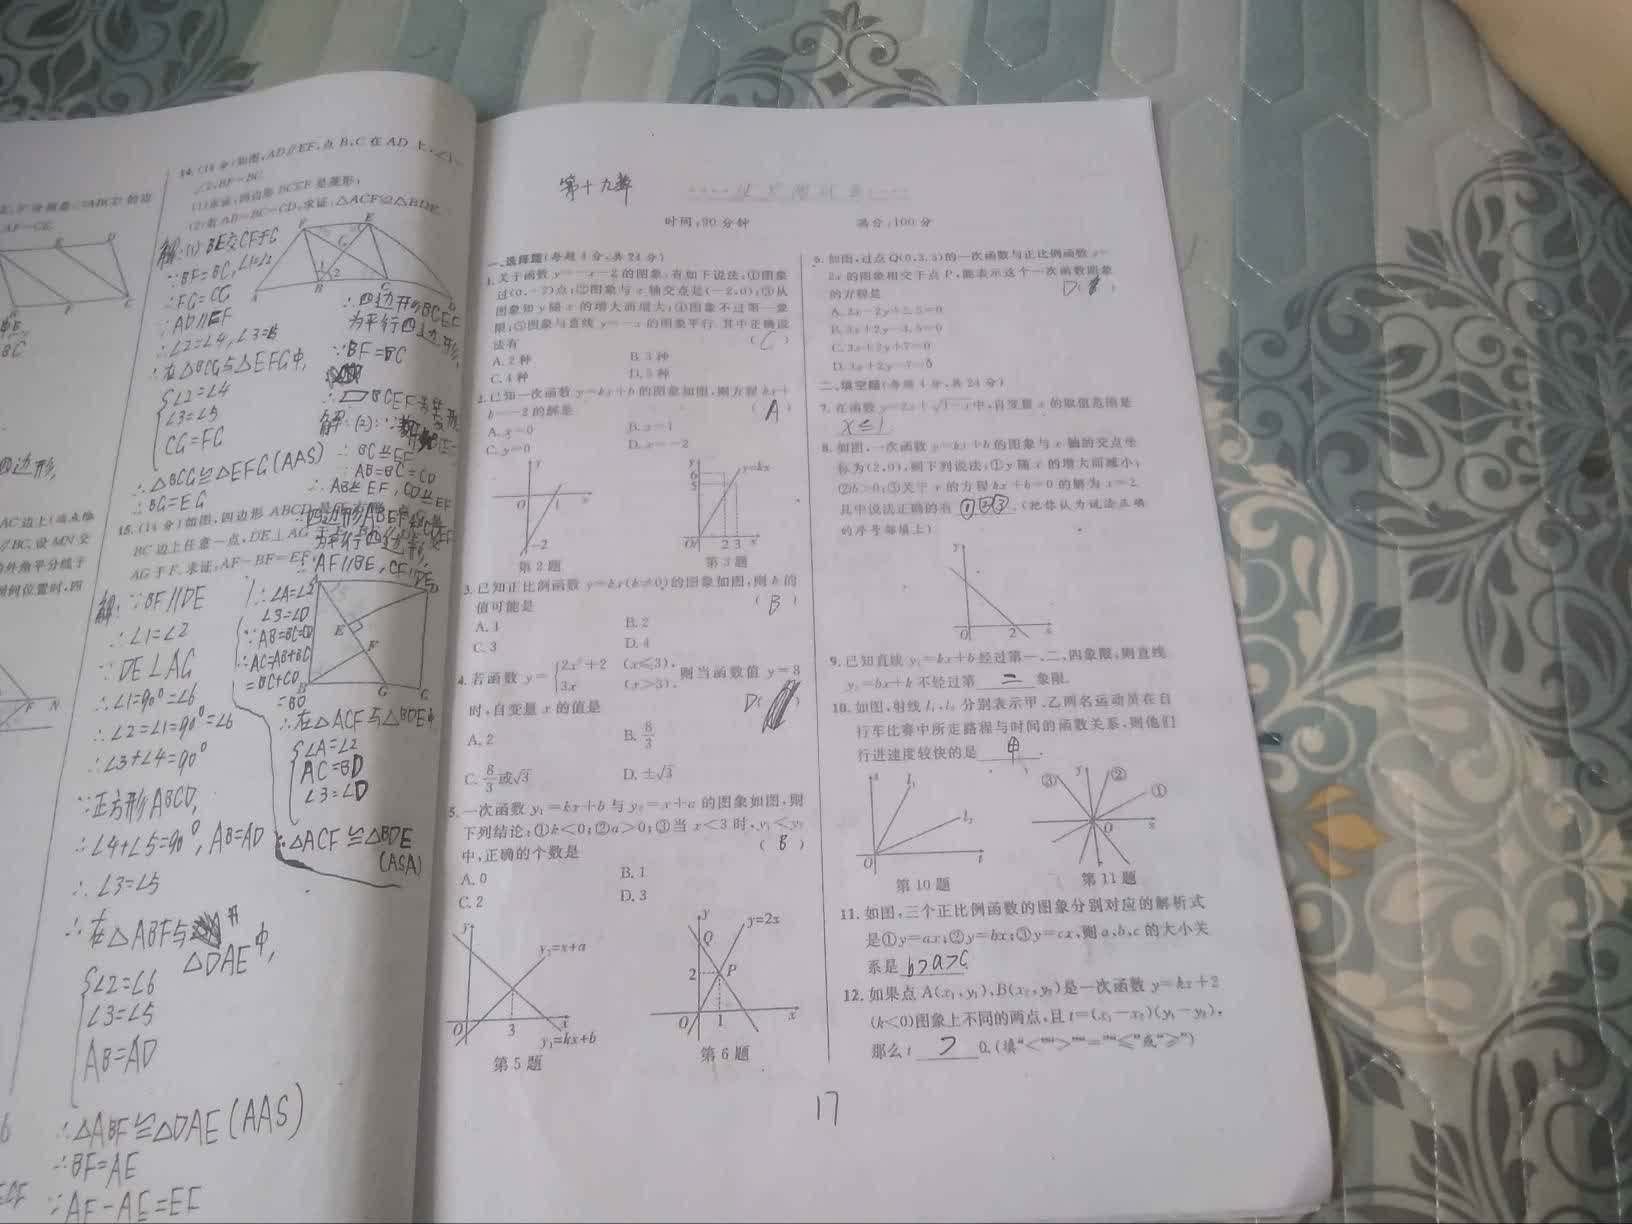 14.(14分)如图,AD∥EF,点B,C在AD上,∠1=
∠2,BF=BC.
(1)求证:四边形BCEF是菱形;
(2)若AB=BC=CD,求证:△ACF≌△BDE.
解:(1)BE交CF于G
∵BF=BC,∠1=∠2
∴FG=CG
∵AD∥EF
∴∠2=∠4,∠3=∠5
∴在△BCG与△EFG中,
∠2=∠4
∠3=∠5
CG=FG
∴△BCG≌△EFG(AAS)
∴BG=EG
∴四边形BCEF
为平行四边形,
∵BF=BC
∴▱BCEF为菱形
解:(2):∵
∴BC≌EF
AB=BC=CD
∴AB≌EF,CD≌EF
∴四边形ABEF
为平行四边形,
∴AF∥BE,CF∥DE
15.(14分)如图,四边形ABCD
BC边上任意一点,DE⊥AG
AG于F.求证:AF-BF=EF.
解:∵BF∥DE
∴∠1=∠2
∵DE⊥AG
∴∠1=90°=∠6
∴∠2=∠1=90°=∠6
∴∠3+∠4=90°
∵正方形ABCD,
∴∠4+∠5=90°,AB=AD
∴∠3=∠5
∴在△ABF与
△DAE中,
∠2=∠6
∠3=∠5
AB=AD
∴△ABF≌△DAE(AAS)
∴BF=AE
∵AF-AE=EF
∴∠A=∠2
∠3=∠D
∵AB=BC=CD
∴AC=AB+BC
=BC+CD
=BD
∴在△ACF与△BDE中
∠A=∠2
AC=BD
∠3=∠D
∴△ACF≌△BDE
(ASA)
第十九章
时间:90分钟 满分:100分
一、选择题(每题4分,共24分)
1.关于函数y=-x-2的图象,有如下说法:①图象
过(0,-2)点;②图象与x轴交点是(-2,0);③从
图象知y随x的增大而增大;④图象不过第一象
限;⑤图象与直线y=-x的图象平行.其中正确说
法有 (C)
A.2种 B.3种
C.4种 D.5种
2.已知一次函数y=kx+b的图象如图,则方程kx+
b=-2的解是 (A)
A.x=0 B.x=1
C.y=0 D.x=-2
y x -2
第2题
y 6 5 y=kx O 2 3 x
第3题
3.已知正比例函数y=kx(k≠0)的图象如图,则k的
值可能是 (B)
A.1 B.2
C.3 D.4
4.若函数y={2x²+2 (x≤3), 3x (x>3), 则当函数值y=8
时,自变量x的值是 D( )
A.2 B.8/3
C.8/3或√3 D.±√3
5.一次函数y₁=kx+b与y₂=x+a的图象如图,则
下列结论:①k<0;②a>0;③当x<3时,y₁<y₂
中,正确的个数是 (B)
A.0 B.1
C.2 D.3
y y₂=x+a O 3 x y₁=kx+b
第5题
y y=2x Q 2 P O 1 x
第6题
6.如图,过点Q(0,3.5)的一次函数与正比例函数y=
2x的图象相交于点P,能表示这个一次函数图象
的方程是 D( )
A.3x-2y+3.5=0
B.3x+2y-3.5=0
C.3x+2y+7=0
D.3x+2y-7=0
二、填空题(每题4分,共24分)
7.在函数y=2x+√1-x中,自变量x的取值范围是
x≤1
8.如图,一次函数y=kx+b的图象与x轴的交点坐
标为(2,0),则下列说法:①y随x的增大而减小;
②b>0;③关于x的方程kx+b=0的解为x=2.
其中说法正确的有①②③.(把你认为说法正确
的序号都填上)
y O 2 x
9.已知直线y₁=kx+b经过第一、二、四象限,则直线
y₂=bx+k不经过第二象限.
10.如图,射线l₁,l₂分别表示甲、乙两名运动员在自
行车比赛中所走路程与时间的函数关系,则他们
行进速度较快的是甲.
s l₁ l₂ O t
第10题
③ y ② ① O x
第11题
11.如图,三个正比例函数的图象分别对应的解析式
是①y=ax;②y=bx;③y=cx,则a,b,c的大小关
系是b>a>c
12.如果点A(x₁,y₁),B(x₂,y₂)是一次函数y=kx+2
(k<0)图象上不同的两点,且t=(x₁-x₂)(y₁-y₂),
那么t 0.(填“<”“>”“=”“≤”或“≥”)
17